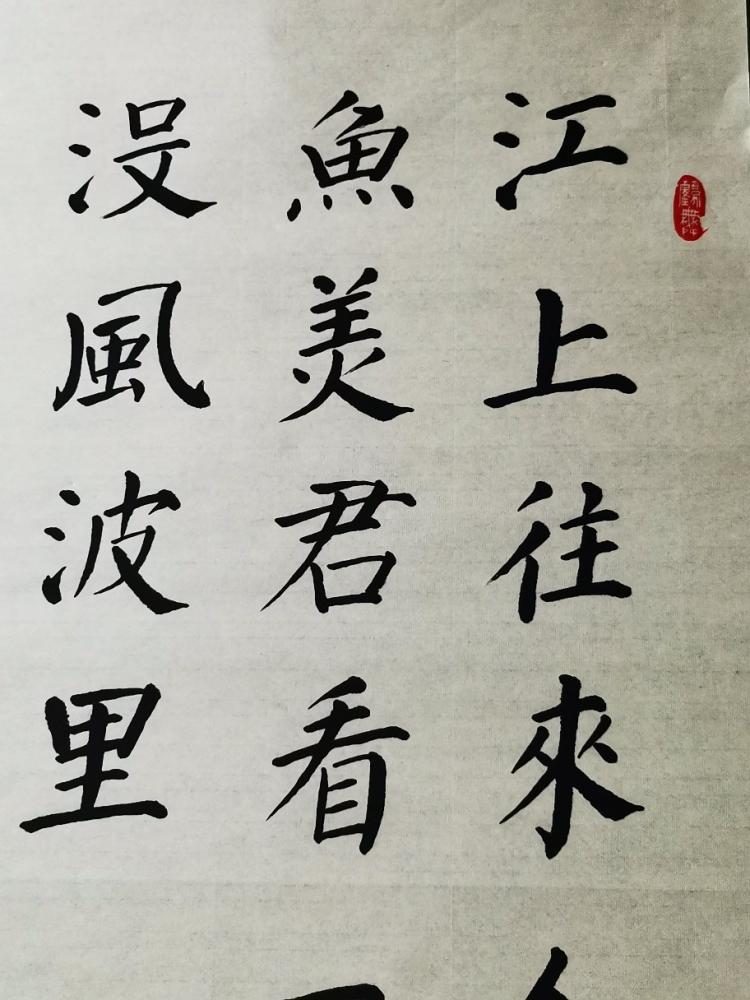 江上往來
魚美君看
没風波里